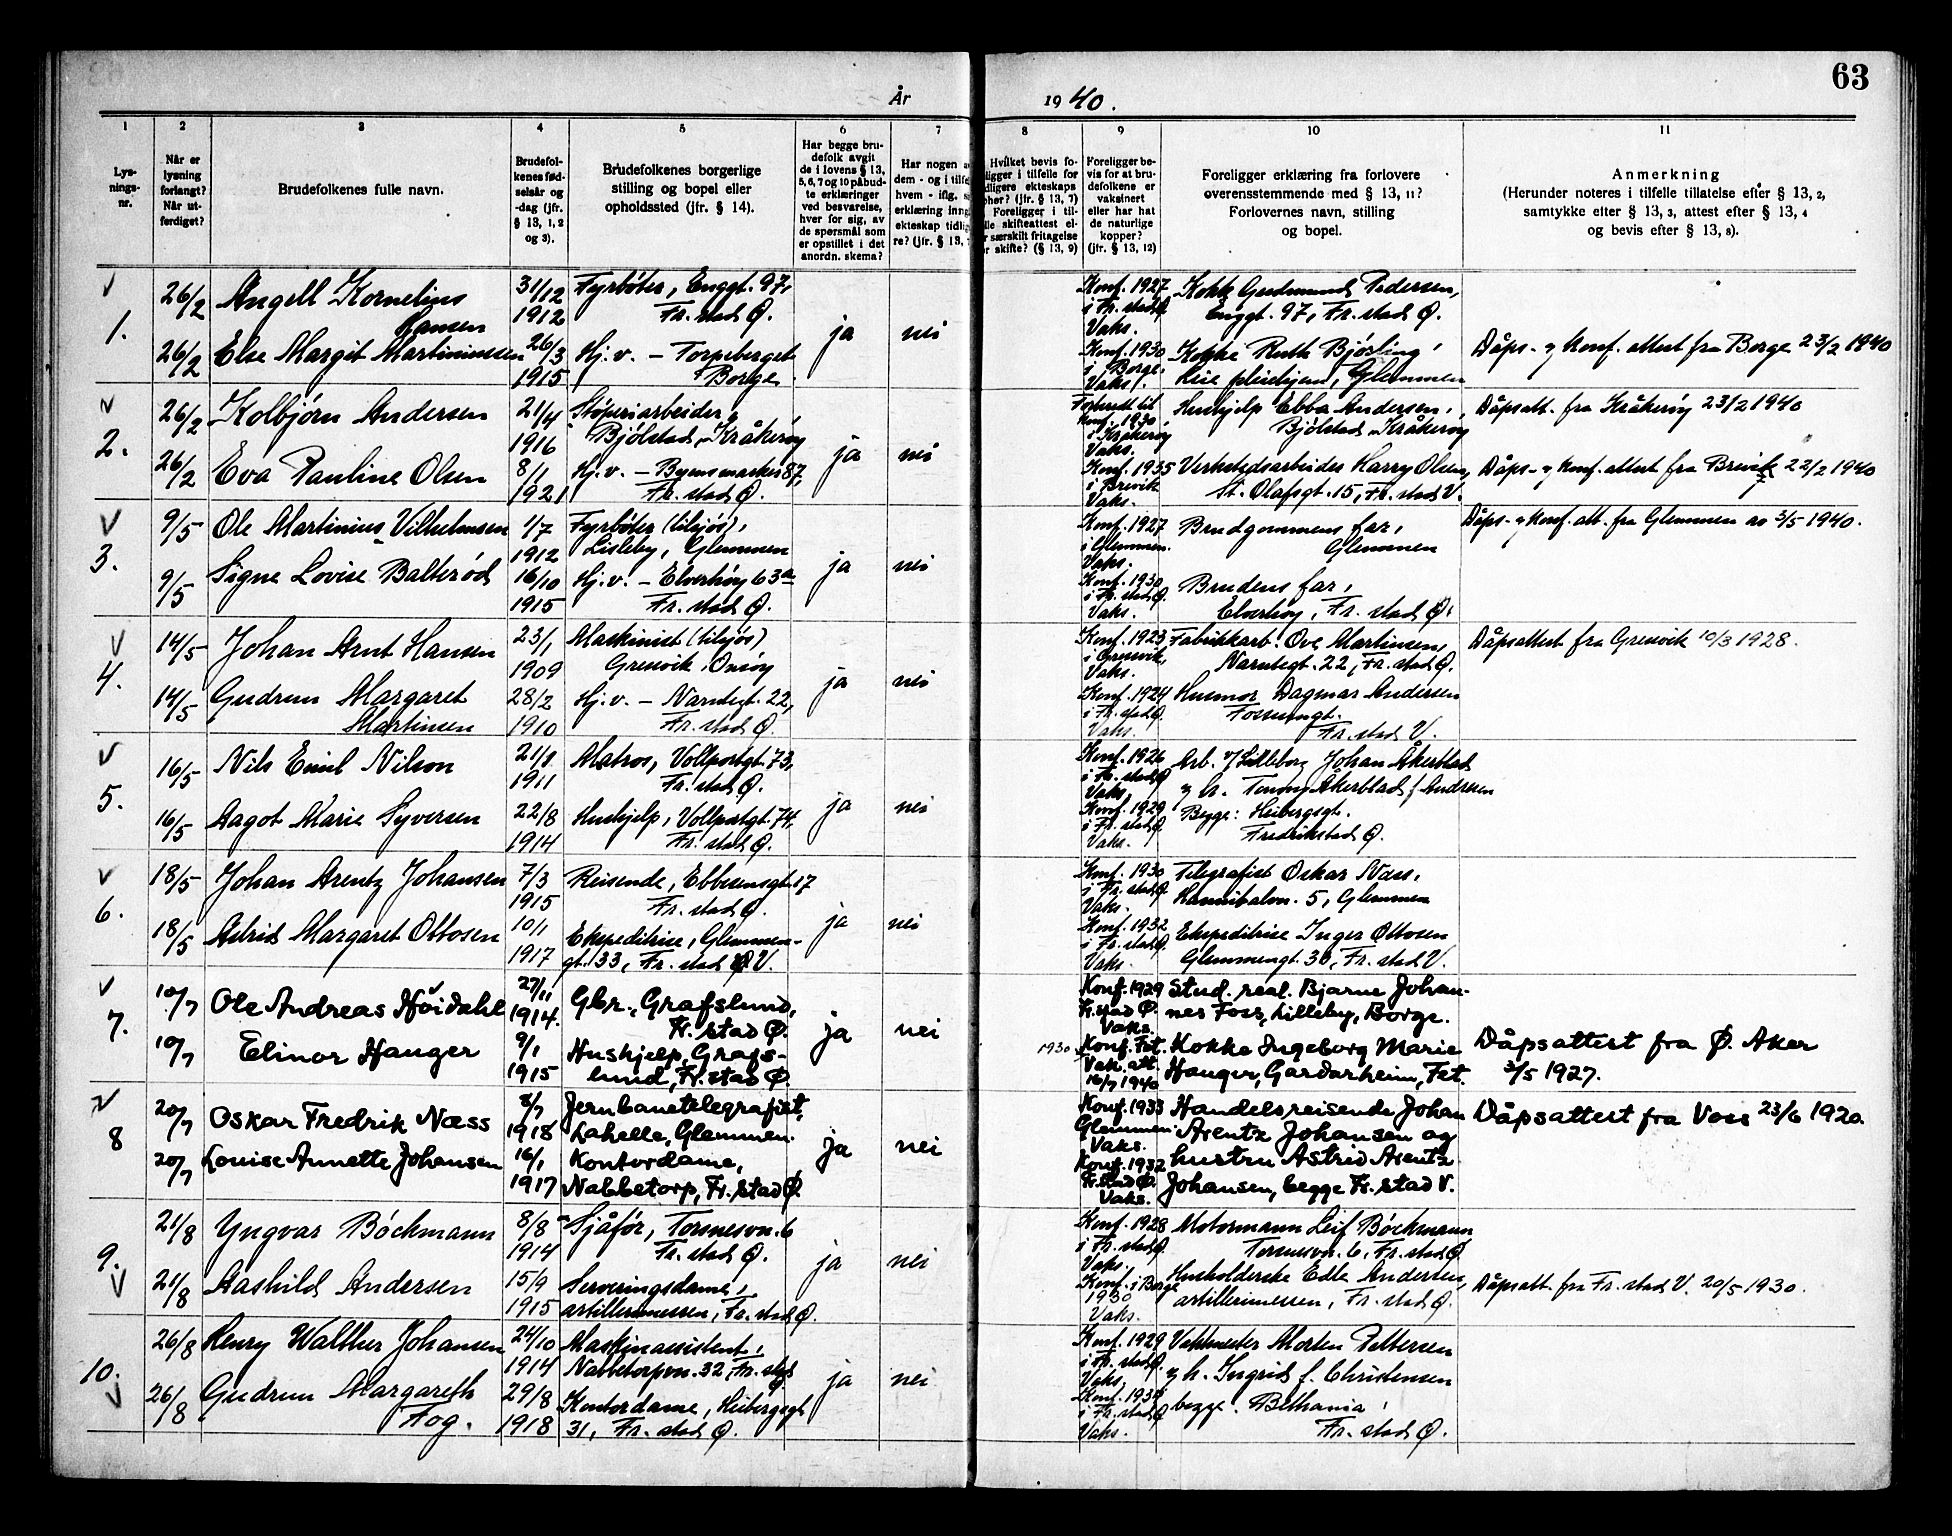 63
År 1940.
1 2 3 4 5 6 7 8 9 10 11
Lys-
nings-
nr.
Når er
lysning
forlangt?
Når ut-
ferdiget?
Brudefolkenes fulle navn.
Brudefol-
kenes fød-
selsår og
-dag (jfr.
§ 13, 1, 2
og 3).
Brudefolkenes borgerlige
stilling og bopel eller
opholdssted (jfr. § 14).
Har begge bru-
defolk avgit
de i lovens § 13,
5, 6, 7 og 10 påbud-
te erklæringer
ved besvarelse,
hver for sig, av
de spørsmål som
er opstillet i det
anordn. skema?
Har nogen a
dem - og i tilfe
hvem - iflg. s
erklæring inng
ekteskap tidlig
re? (jfr. § 13,
Hvilket bevis fo-
ligger i tilfelle for
dligere ekteskaps
phør? (jfr. § 13, 7)
Foreligger i til-
lle skifteattest el-
r særskilt fritagelse
r skifte? (§ 13, 9)
Foreligger be-
vis for at bru-
defolkene er
vaksinert
eller har hat
de naturlige
kopper?
(jfr. § 13, 12)
Foreligger erklæring fra forlovere
overensstemmende med § 13, 11?
Forlovernes navn, stilling
og bopel.
Anmerkning
(Herunder noteres i tilfelle tillatelse efter § 13, 2,
samtykke efter § 13, 3, attest efter § 13, 4
og bevis efter § 13, 8).
1.
26/2 Angell Kornelius
Hansen
31/12
1912
Fyrbøter, Enggt. 97,
Fr.stad Ø.
ja nei
Konf. 1927
i Fr.stad Ø
Vaks.
Kokk Gudmund Pedersen,
Enggt. 97, Fr.stad Ø.
26/2 Else Margit Martiniussen
26/3
1915
Hj.v. – Torpeberget
Borge.
Konf. 1930
i Borge.
Vaks.
Kokke Ruth Bjøsling,
pleiehjem, Glemmen
Dåps- og konf. attest fra Borge 23/2 1940
2.
26/2 Kolbjørn Andersen
21/4
1916
Støperiarbeider,
Bjølstad, Kråkerøy
ja nei
Forberedt til
konf. 1930
i Kråkerøy
Vaks.
Hushjelp Ebba Andersen,
Bjølstad, Kråkerøy
Dåpsatt. fra Kråkerøy 23/2 1940
26/2 Eva Pauline Olsen
8/1
1921
Hj.v. – Byensmarken 87,
Fr.stad Ø.
Konf. 1935
i Brevik
Vaks.
Verkstedsarbeider Harry Olsen,
St. Olafsgt. 15, Fr.stad V.
Dåps- og konf. attest fra Brevik 22/2 1940
3.
9/5 Ole Martinius Vilhelmsen
1/7
1912
Fyrbøter (tilsjøs),
Lisleby, Glemmen
ja nei
Konf. 1927
i Glemmen.
Vaks.
Brudgommens far,
Glemmen
Dåps- og konf. att. fra Glemmen av 3/5 1940.
9/5 Signe Lovise Balterød
16/10
1915
Hj.v. – Elverhøy 63a
Fr.stad Ø.
Konf. 1930
i Fr.stad Ø.
Vaks.
Brudens far,
Elverhøy, Fr.stad Ø.
4.
14/5 Johan Arnt Hansen
23/1
1909
Maskinist (tilsjøs)
Gressvik, Onsøy
ja nei
Konf. 1923
i Gressvik,
Vaks.
Fabrikkarb. Ove Martinsen,
Narntegt. 22, Fr.stad Ø.
Dåpsattest fra Gressvik 10/3 1928.
14/5 Gudrun Margaret
Martinsen
28/2
1910
Hj.v. – Narntegt. 22,
Fr.stad Ø.
Konf. 1924
i Fr.stad Ø.
Vaks.
Husmor Dagmar Andersen
Fr.stad V.
5.
16/5 Nils Emil Nilson
21/8
1911
Matros, Vollportgt. 73,
Fr.stad Ø.
ja nei
Konf. 1926
i Fr.stad Ø
Vaks.
Arb. v/ Lilleborg Johan Åkerblad
og h. Tenny Åkerblad f. Andresen
16/5 Aagot Marie Syversen
22/8
1914
Hushjelp, Vollportgt. 74,
Fr.stad Ø.
Konf. 1929
i Fr.stad Ø
Vaks.
Begge: Heibergsgt.
Fredrikstad Ø.
6.
18/5 Johan Arentz Johansen
7/3
1915
Reisende, Ebbesensgt. 17
Fr.stad Ø.
ja nei
Konf. 1930
i Fr.stad Ø.
Vaks.
Telegrafist Oskar Næss,
Hannibalsv. 5, Glemmen
18/5 Astrid Margaret Ottosen
10/1
1917
Ekspeditrise, Glemmen-
gt. 33, Fr.stad V.
Konf. 1932
i Fr.stad Ø.
Vaks.
Ekspeditrise Inger Ottosen
Glemmengt. 33, Fr.stad V.
7.
10/7 Ole Andreas Høidahl
27/11
1914.
Gbr., Grafslund,
Fr.stad Ø.
ja nei
Konf. 1929
Fr.stad Ø.
Vaks.
Stud. real. Bjarne Johan-
nes Foss, Lilleby, Borge.
10/7 Elinor Hauger
9/1
1915
Hushjelp, Grafs-
lund, Fr.stad Ø.
1930 Konf. Fet.
Vak. att.
16/7 1940
Kokke Ingeborg Marie
Hauger, Gardarheim, Fet.
Dåpsattest fra Ø. Aker
3/5 1927.
8
20/7 Oskar Fredrik Næss
8/7
1918
Jernbanetelegrafist,
Lahelle, Glemmen.
ja nei
Konf. 1933
Glemmen
Vaks.
Handelsreisende Johan
Arentz Johansen og
Dåpsattest fra Voss 23/6 1920.
20/7 Louise Annette Johansen
16/1
1917
Kontordame,
Nabbetorp, Fr.stad Ø.
Konf. 1932
Fr.stad Ø.
Vaks.
hustru Astrid Arentz
Johansen, begge Fr.stad V.
9.
21/8 Yngvar Bøckmann
8/8
1914
Sjåfør, Torsnesvn. 6
Fr.stad Ø.
ja nei
Konf. 1928
i Fr.stad Ø
Vaks.
Motormann Leif Bøckmann
Torsnesvn. 6, Fr.stad Ø
21/8 Aashild Andersen
15/9
1915
Serveringsdame,
artillerimessen, Fr.stad Ø.
Konf. i Borge
1930
Vaks.
Husholderske Edle Andersen,
artillerimessen, Fr.stad Ø.
Dåpsatt. fra Fr.stad V. 20/5 1930.
10.
26/8 Henry Walther Johansen
24/10
1914
Maskinassistent,
Nabbetorpvn. 32, Fr.stad
Ø.
ja nei
Konf. 1929
i Fr.stad Ø
Vaks.
Vaktmester Morten Pettersen
og h. Ingrid f. Christensen
26/8 Gudrun Margareth
Fog.
29/8
1918
Kontordame, Heibergsgt
31, Fr.stad Ø.
Konf.
i Fr.stad Ø
Vaks.
begge. Bethania,
Fr.stad Ø.